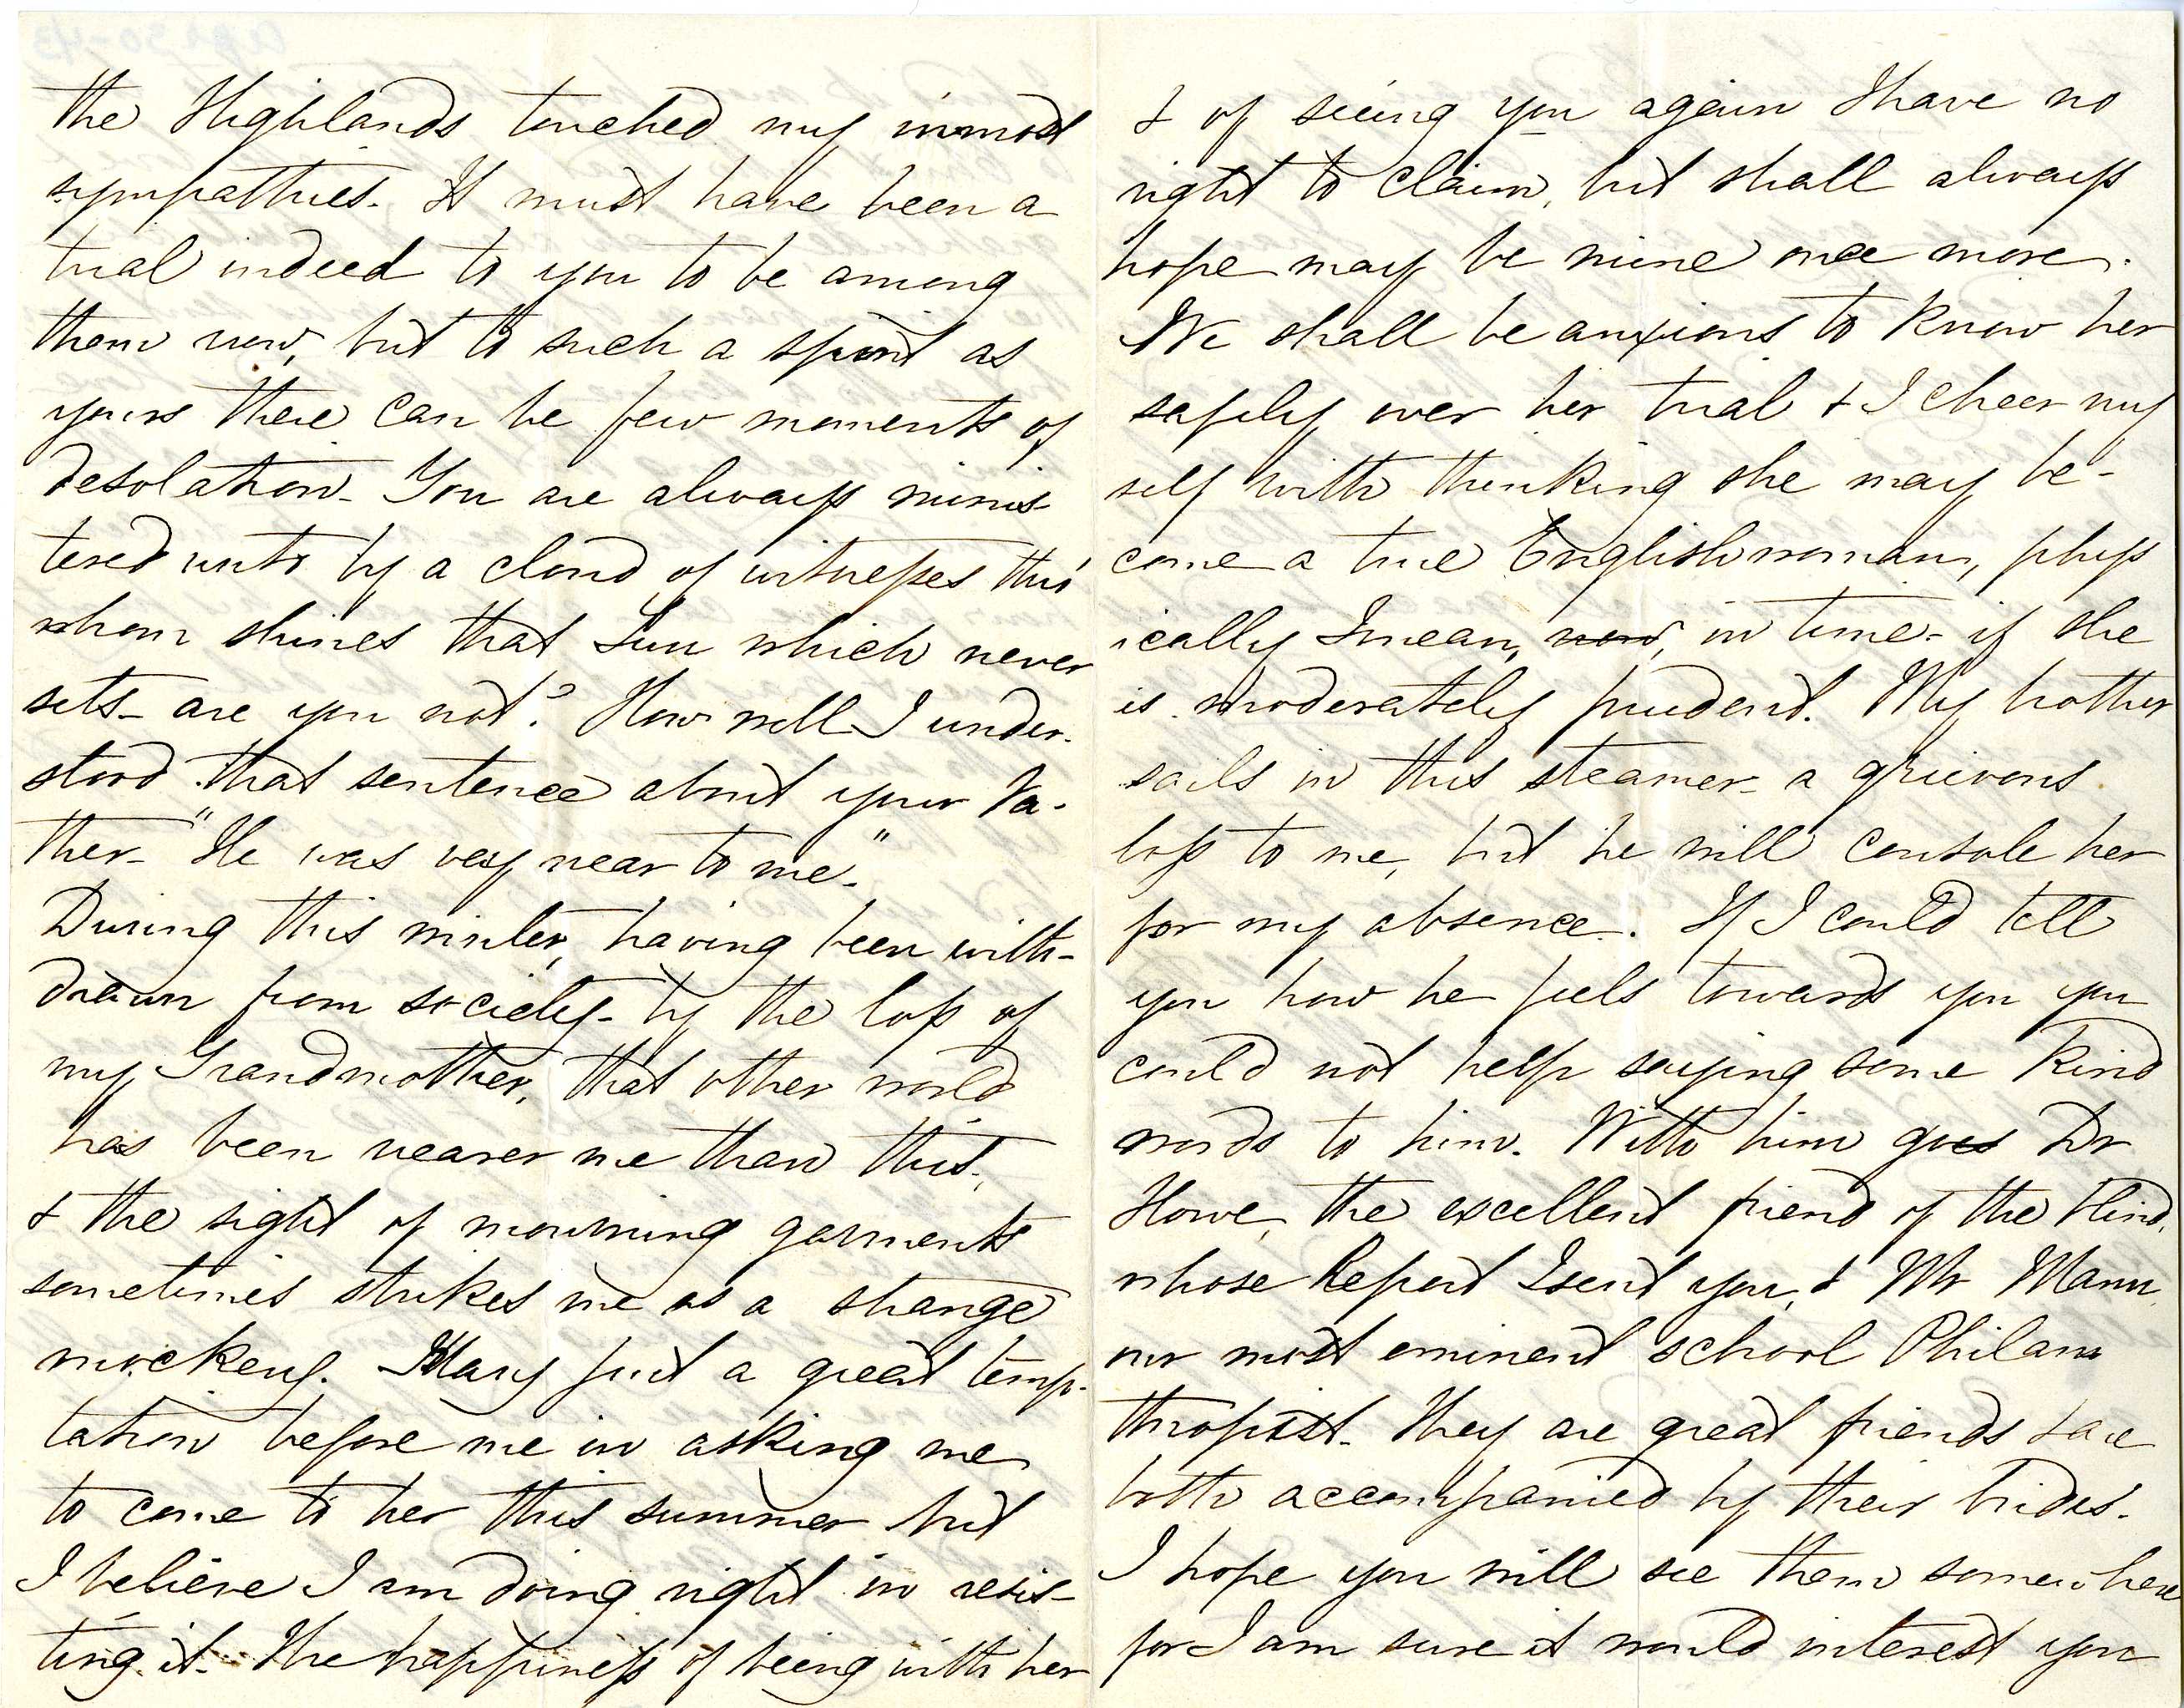 the Highlands touched my inmost
sympathies. It must have been a
trial indeed to you to be among
them now, but to such a spirit as
yours there can be few moments of
desolation. You are always minis-
tered unto by a cloud of witnesses thro'
whom shines that Sun which never
sets - are you not? How well I under-
stood that sentence about your Fa-
ther - "He was very near to me."
During this winter, having been with-
drawn from society - by the loss of
my Grandmother, that other world
has been nearer me than this,
& the sight of mourning garments
sometimes strikes me as a strange
mockery. Mary put a great temp-
tation before me in asking me
to come to her this summer but
I believe I am doing right in resis-
ting it. The happiness of being with her
& of seeing you again I have no
right to claim, but shall always
hope may be mine once more.
We shall be anxious to know her
safely over her trial & I cheer my
self with thinking she may be-
come a true Englishwoman, phys
ically I mean, now, in time - if she
is moderately prudent. My brother
sails in this steamer - a grievous
loss to me, but he will console her
for my absence. If I could tell
you how he feels towards you you
could not help saying some kind
words to him. With him goes Dr
Howe, the excellent friend of the Blind,
whose Report I sent you, & Mr Mann
our most eminent school Philan
thropist. They are great friends & are
both accompanied by their brides.
I hope you will see them somewhere
for I am sure it would interest you